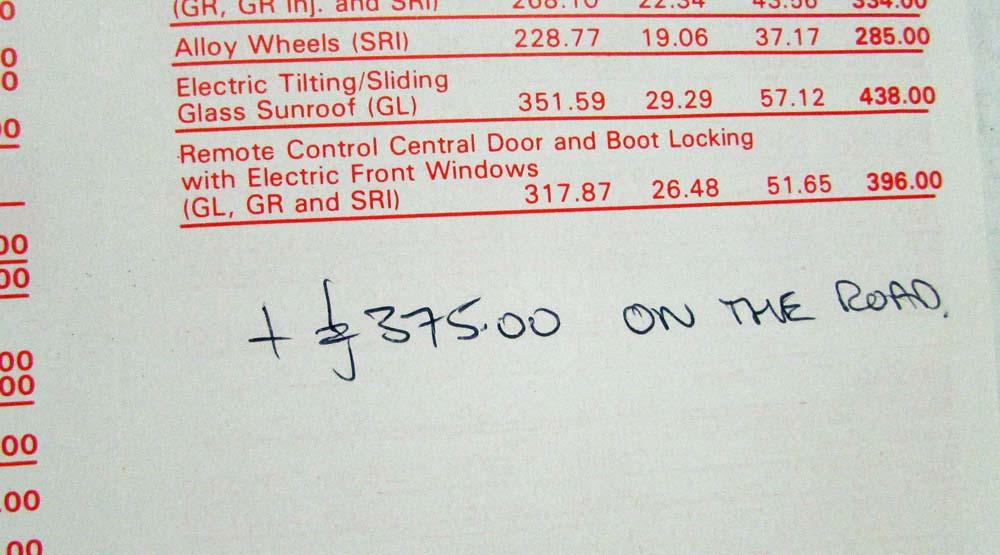 (GR, GR Inj. and SRI) 268.10 22.34 43.56 334.00
Alloy Wheels (SRI) 228.77 19.06 37.17 285.00
Electric Tilting/Sliding
Glass Sunroof (GL) 351.59 29.29 57.12 438.00
Remote Control Central Door and Boot Locking
with Electric Front Windows
(GL, GR and SRI) 317.87 26.48 51.65 396.00
+ £375.00 ON THE ROAD.
0
0
0
00
00
00
00
00
00
.00
00